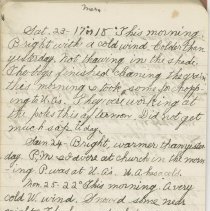 Mar
Sat. 23- 17 18 This morning.
Bright with a cold wind. Colder than
yesterday, not thawing in the shade.
The boys finished cleaning the
this morning & took some for chopp-
ing to U.G's. They are working at
the poles this afternoon. Did not get
much sap to day.
Sun 24- Bright, warmer than yester-
day. P.M. at church in the morn-
ing. P. was at U. G's. U. A. has cold.
Mon. 25- 22° This morning. A very
cold W. wind. Snowed some near